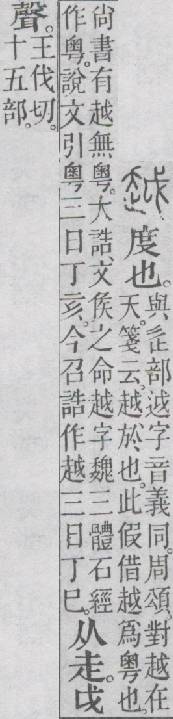 越度也。
與辵部𨒋字音義同。周頌。對越在
天。箋云。越、於也。此假借越爲粤也。
尚書有越無粤。大誥、文矦之命越字魏三體石經
作粤。說文引粤三日丁亥、今召誥作越三日丁巳。
从走。戉
聲。
王伐切。
十五部。